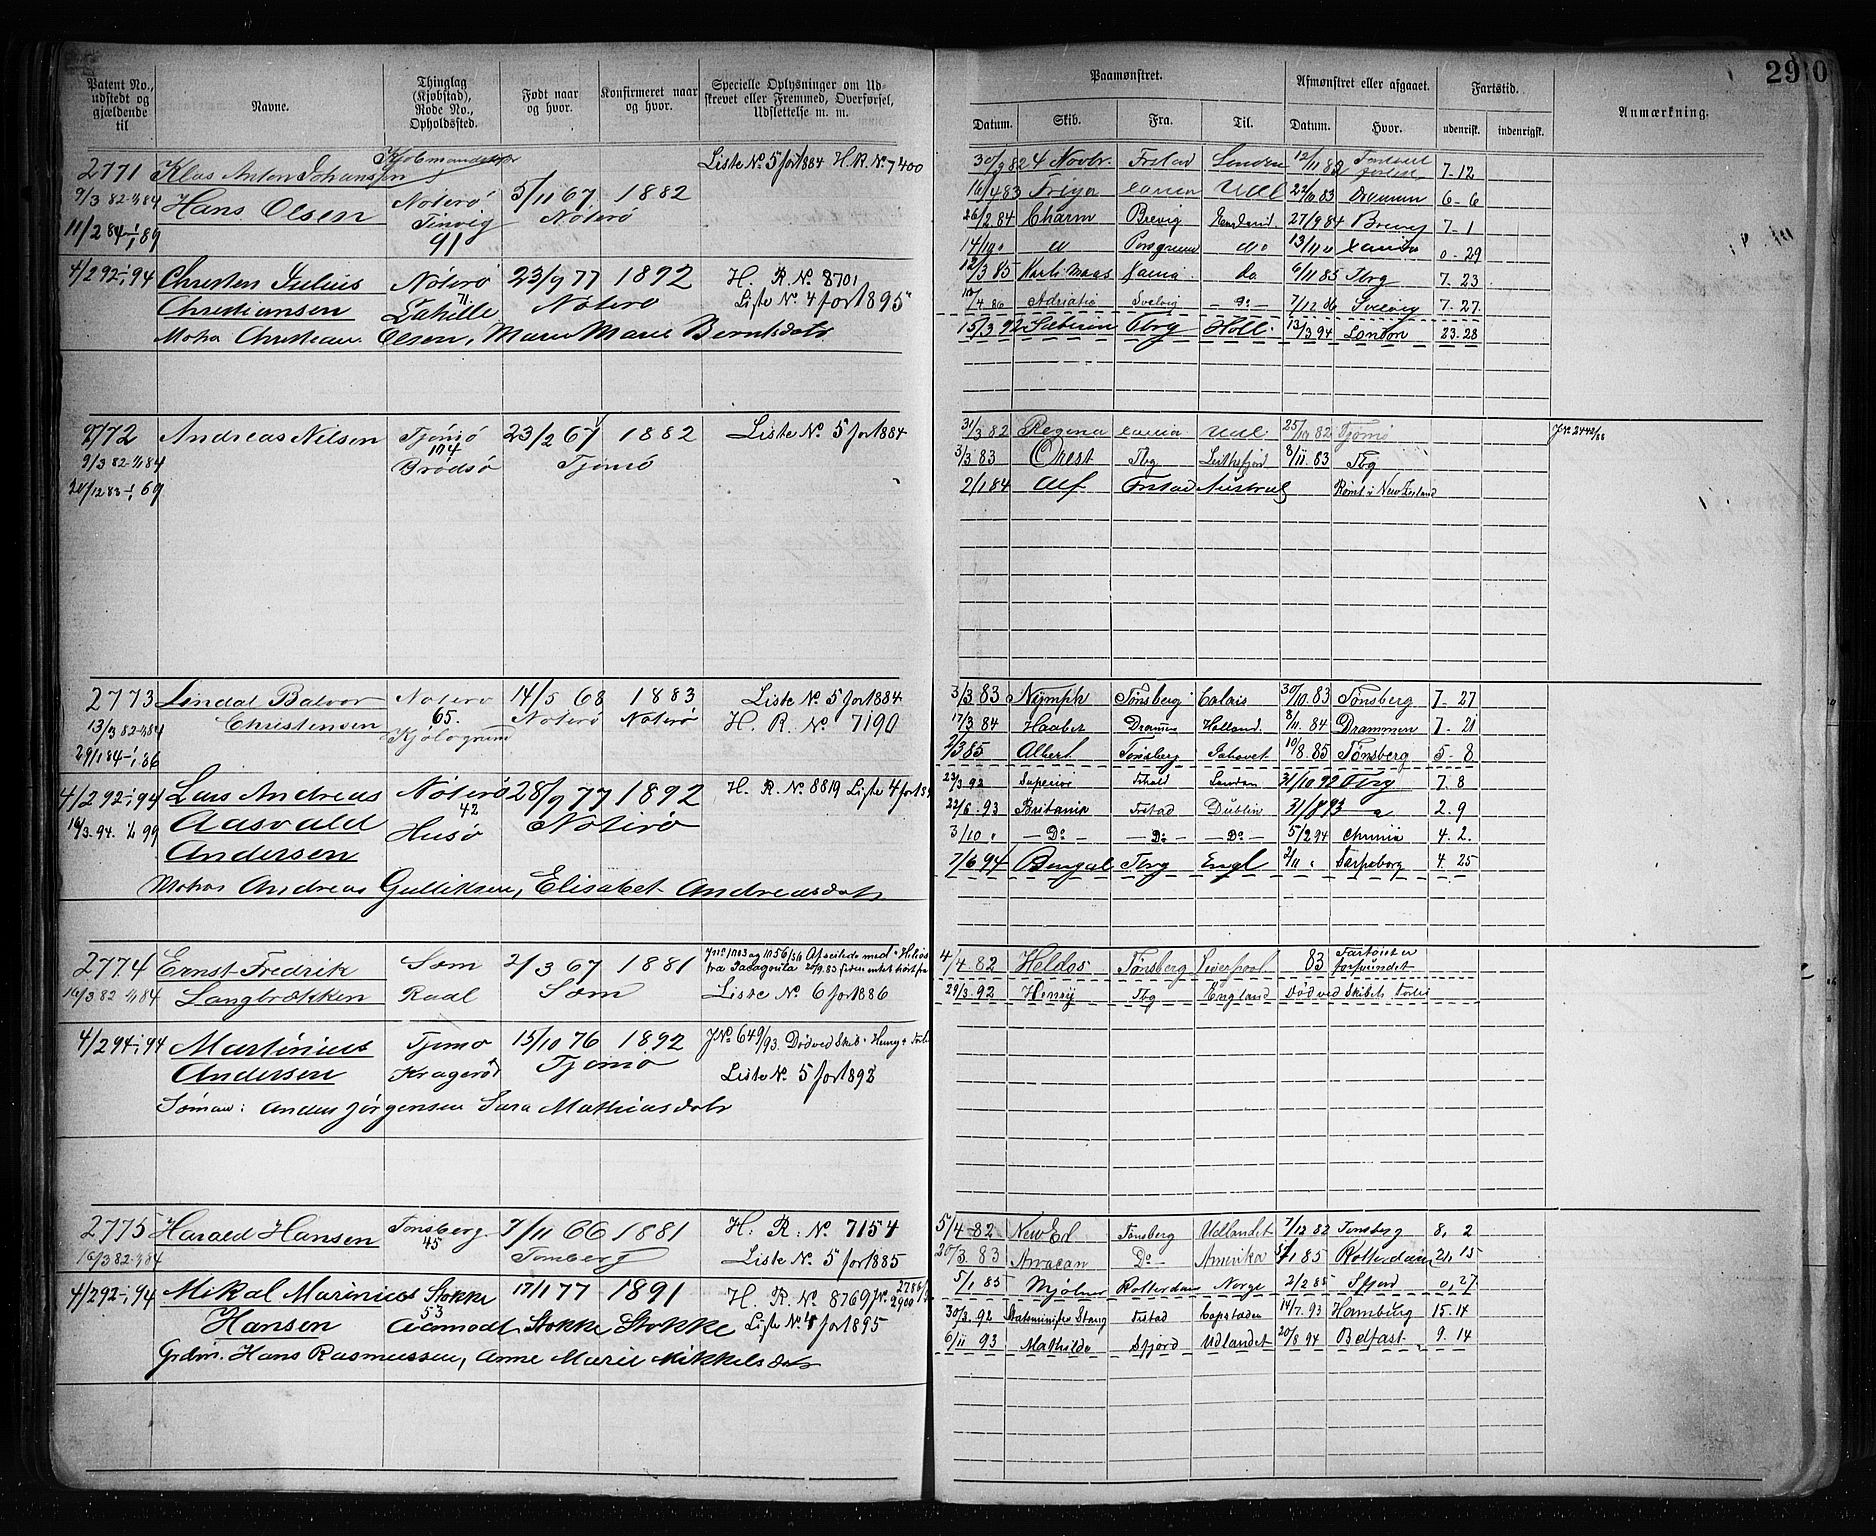 290
Patent No., udstedt og gjældende til
Navne.
Thinglag (Kjøbstad), Rode No., Opholdssted.
Født naar og hvor.
Konfirmeret naar og hvor.
Specielle Oplysninger om Udskrevet eller Fremmed, Overførsel, Udslettelse m. m.
Paamønstret.
Afmønstret eller afgaaet.
Fartstid.
Anmærkning.
Datum. Skib. Fra. Til. Datum. Hvor. udenrigsk. indenrigsk.
2771 Klas Anton Johansen Liste No. 5 for 1884 H. R. No. 7400
9/3 82-1/1 84 Hans Olsen Nøterø 5/11 67 1882
11/2 84-1/1 89 Tinvig Nøterø
91
4/2 92-1/1 94 Christen Julius Nøterø 23/9 77 1892 H. R. No. 8701
Christiansen 71 Nøterø Liste No. 4 for 1895
Christian Olsen, Maren Marie Berntsdatr
30/3 82 4 Novbr. Frstad London 12/11 82 7-12
16/4 83 Freya Udl 22/10 83 Drammen 6-6
26/2 84 Charm Brevig 27/9 84 Brevig 7-1
14/10 Porsgrund do 13/11 0-29
12/3 85 do 6/11 85 Tbrg 7.23
4.86 Adriatic Svelvig Do 7/12 86 Svelvig 7.27
15/3 92 Tbrg Holl. 13/3 94 London 23.28
2772 Andreas Nilsen Tjømø 23/2 67 1882 Liste No. 5 for 1884
9/3 82-1/1 84 104 Tjømø
20/12 83-1/1 69 Brødsø
31/3 82 Regina Udl. 25/10 82 Tjømø
3/3 83 Orest Tbg 8/11 83 Tbg
2/1 84 Alf Frstad Austral Rømt i New Zealand
2773 Lindal Balvor Nøterø 14/5 68 1883 Liste No. 5 for 1884
13/3 82-1/1 84 Christensen 65. Nøterø Nøterø H. R. No. 7190
29/1 84-1/1 86 Kjølogrund
4/2 92-1/1 94 Lars Andreas Nøterø 28/9 77 1892 H. R. No. 8819 Liste 4 for
16/3.94. 1/1 99 Aasvald 42 Nøterø
Andersen Husø
Andreas Gulliksen, Elisabet Andreasdatr
3/3 83 Nymph Tønsberg Calais 30/10 83 Tønsberg 7-27
17/3 84 Haabet Drammen Holland. 8/11. 84 Drammen 7-21
2/3 85 Albert Tønsberg Ishavet 10/8 85 Tønsberg 5-8
23/3 92 Superior London 31/10 92 Tbrg 7.8
22/6. 93 Britania Frstad Dublin 31/8 93 2.9
3/10 Do Do Do 5/2 94 4.2.
7/6 94 Bengal Tbrg Engl 2/11 Sarpsborg 4.25
2774 Ernst Fredrik Sæm 2/3 67 1881 Afseilede med "Helios"
16/3 82 1/1 84 Langbrækken Raal Sæm Liste No. 6 for 1886
fra Pascagoula 20/9.83
4/2 94-1/1 94 Martinius Tjømø 15/10 76 1892 JNo 649/93. Død ved Skib "Henry"s Forlis
Andersen Kragerø Tjømø Liste No. 5 for 1893
Sømand: Anders Jørgensen Sara Mathiasdatr
4/4 82 Heldos Tønsberg Liverpool 83 Fartøiet er forsvundet
29/3.92 Henry Tbg England Død ved Skibets Forlis
2775 Harald Hansen Tønsberg 7/11 66 1881 H. R. No. 7154
16/3 82-1/1 84 45 Tønsberg Liste No. 5 for 1885
4/2 92-1/1 94 Mikal Marinius Stokke 17/1 77 1891 H. R. No. 8769
Hansen 53 Aamodt Stokke Stokke Liste No. 4 for 1895
Grdbr. Hans Rasmussen, Anne Marie Mikkelsdatr
5/4 82 New Ed Tønsberg Udlandet 7/12 82 Tønsberg 8. 2
20/3 83 Arracan Do Amerika 85 Rotterdam 21.15
5/1 85 Mjølner Rotterdam Norge 2/2 85 Sfjord 0.27
30/3.92 Statsminister Stang Frstad Capstaden 14/7.93 Hamburg 15.14
6/11 93 Mathilde Sfjord Udlandet 20/8 94 Belfast. 9.14